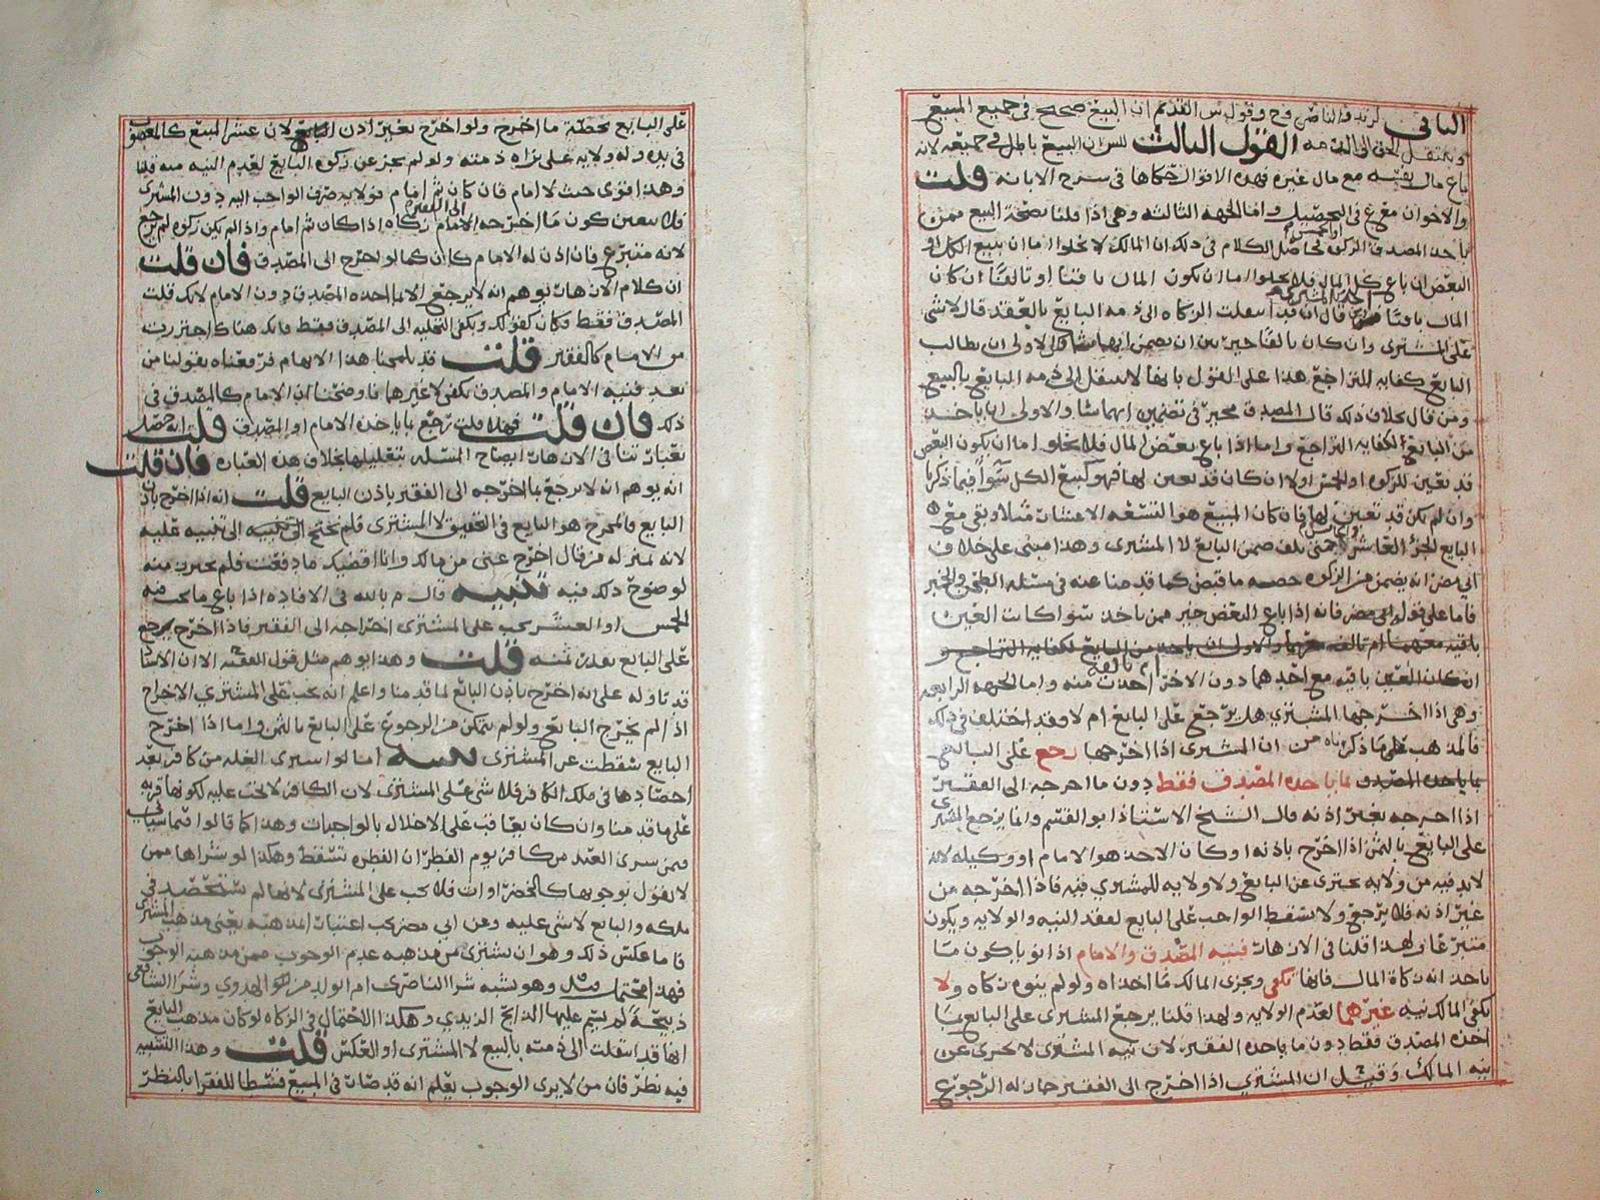 الثاني لزيد والناصر وح وقول ش القديم ان البيع صحيح في جميع المبيع
وينتقل الحق الى الذمه القول الثالث للش ان البيع باطل في جميعه لانه
باع ماله وبقيه مع مال غيره فهذه الاقوال حكاها في شرح الابانه قلت
والاخوان مفرع في التحصيل واما الجهه الثالثه وهي اذا قلنا بصحة البيع فممن
ياخذ المصدق الزكوه او الخمس فحاصل الكلام في ذلك ان المالك لا يخلوا اما ان يبيع الكل او
البعض ان باع كل المال فلا يخلوا اما ان يكون المال باقيا او تالفا ان كان
المال باقيا قال قد انتقلت الزكاه الى ذمه البايع بالعقد قال لا شي
على المشتري وان كان تالفا خير بين ان يضمن ايهما شا والاولى ان يطالب
البايع كفايه التراجع هذا على القول بانها لا تنتقل الى ذمه البايع بالبيع
ومن قال بخلاف ذلك قال المصدق مخير في تضمين ايهما شا والاولى ان ياخذ
من البايع لكفايه التراجع واما اذا باع بعض المال فلا يخلو اما ان يكون البعض
قد تعين للزكوه او الخمس اولا ان كان قد تعين لها فهو كبيع الكل سوا فيما ذكرنا
وان لم يكن قد تعين لها فان كان المبيع هو التسعه الاعشار مثلا وبقي مع
البايع الجزء العاشر حتى تلف ضمن البايع لا المشتري وهذا مبني على خلاف
ابي مضر انه يضمن من الزكوه حصه ما قبض كما قدمنا عنه في مسئله الطحن والخبر
فاما على قول ابي مضر فانه اذا باع البعض خير ممن ياخذ سوا كانت العين
باقيه معهما ام تالفه معهما والاولى ان ياخذ من البايع لكفايه التراجع و
ان كان العين باقيه مع احدهما دون الاخر اخذت منه واما الجهه الرابعه
وهي اذا اخرجها المشتري هل يرجع على البايع ام لا وقد اختلف في ذلك
فالمذهب على ما ذكرناه من ان المشتري اذا اخرجها رجع على البايع
بما ياخذه المصدق بما ياخذه المصدق فقط دون ما اخرجه الى الفقير
اذا اخرجه بغير اذنه قال الشيخ الاستاذ ابو القسم وانما يرجع المشتري
على البايع بالثمن اذا اخرج باذنه او كان الاخذ هو الامام او وكيله لانه
لابد فيه من ولايه تجزى عن البايع ولا ولايه للمشتري فيه فاذا اخرجه من
غير اذنه فلا يرجع ولا يسقط الواجب على البايع لفقد النيه والولايه ويكون
متبرعا ولهذا قلنا في الازهار فنيه المصدق والامام اذا نويا كون ما
ياخذانه زكاة المال فانها تكفي ويجزى المالك ما اخذاه ولو لم ينوه زكاه ولا
تكفي المالك نيه غيرهما لعدم الولايه ولهذا قلنا يرجع المشتري على البايع بما
اخذه المصدق فقط دون ما ياخذه الفقير لان نيه المشتري لا تجزى عن
نيه المالك وقيل ان المشتري اذا اخرج الى الفقير جاز له الرجوع
على البايع بحصة ما اخرج ولو اخرج بغير اذن البايع لان عشر المبيع كالمغصوب
في يده وله ولايه على براه ذمته ولو لم يجز عن زكوه البايع لعدم النيه منه قلنا
وهذا قوى حيث لا امام فان كان ثم امام فولايه صرف الواجب اليه دون المشتري
فلا يتعين كون ما اخرجه الى الفقير زكاه اذا كان ثم امام واذا لم يكن زكوه لم يرجع
لانه متبرع فان اذن له الامام كان كما لو اخرج الى المصدق فان قلت
ان كلام الازهار يوهم انه لا يرجع الا بما اخذه المصدق دون الامام لانك قلت
المصدق فقط فكان كقولك ويكفي التخليه الى المصدق فقط فانك هناك احترزت
من الامام كالفقير قلت قد يلمحنا هذا الايهام فرفعناه بقولنا من
بعد فنيه الامام والمصدق تكفي لا غيرهما فاوضحنا ان الامام كالمصدق في
ذلك فان قلت فهلا قلت رجع بما ياخذه الامام او المصدق قلت انه حصل
بعبارتنا في الازهار ايضاح المسئله بتعليلها بخلاف هذه العباره فان قلت
انه يوهم انه لا يرجع بما اخرجه الى الفقير باذن البايع قلت انه اذا اخرج باذن
البايع فالمخرج هو البايع في التحقيق لا المشتري فلم نحتج الى تنبيه عليه
لانه بمنزله من قال اخرج عني من مالك وانا اقضيك ما دفعت فلم نحترز منه
لوضوح ذلك فيه تنبيه قال م بالله في الافاده اذا باع ما تجب فيه
الخمس او العشر يجب على المشتري اخراجه الى الفقير فاذا اخرج يرجع
على البايع بقدر ثمنه قلت وهذا يوهم مثل قول الفقيه الا ان الاستاذ
قد تاوله على انه اخرج باذن البايع لما قدمنا واعلم انه يجب على المشتري الاخراج
اذا لم يخرج البايع ولو لم يتمكن من الرجوع على البايع بالثمن واما اذا اخرج
البايع سقطت عن المشتري تنبيه اما لو اشترى الغله من كافر بعد
احصادها في ملك الكافر فلا شي على المشتري لان الكافر لا تجب عليه لكونها قربه
على ما قدمنا وان كان يعاقب على الاخلال بالواجبات وهذا كما قالوا فيما سياتي
فيمن شرى العبد من كافر يوم الفطر ان الفطره تسقط وهكذا لو شراها ممن
لا يقول بوجوبها كالخضراوات فلا تجب على المشتري لانها لم تستحصد في
ملكه والبايع لا شي عليه وعن ابي مضر يجب اعتبارا لمذهبه يعني مذهب المشتري
فاما عكس ذلك وهو ان يشتري من مذهبه عدم الوجوب ممن مذهبه الوجوب
فهذا محتمل وهو يشبه شرا الناصري ام الولد من الهدوي وشرا الشافعي
ذبيحة لم يسم عليها الذابح الزيدي وهكذا الاحتمال في الزكاه لو كان مذهب البايع
انها قد انتقلت الى ذمته بالبيع لا المشتري او العكس قلت وهذا التشبيه
فيه نظر فان من لا يرى الوجوب يعلم انه قد صارت في المبيع قسطا للفقرا بالنظر